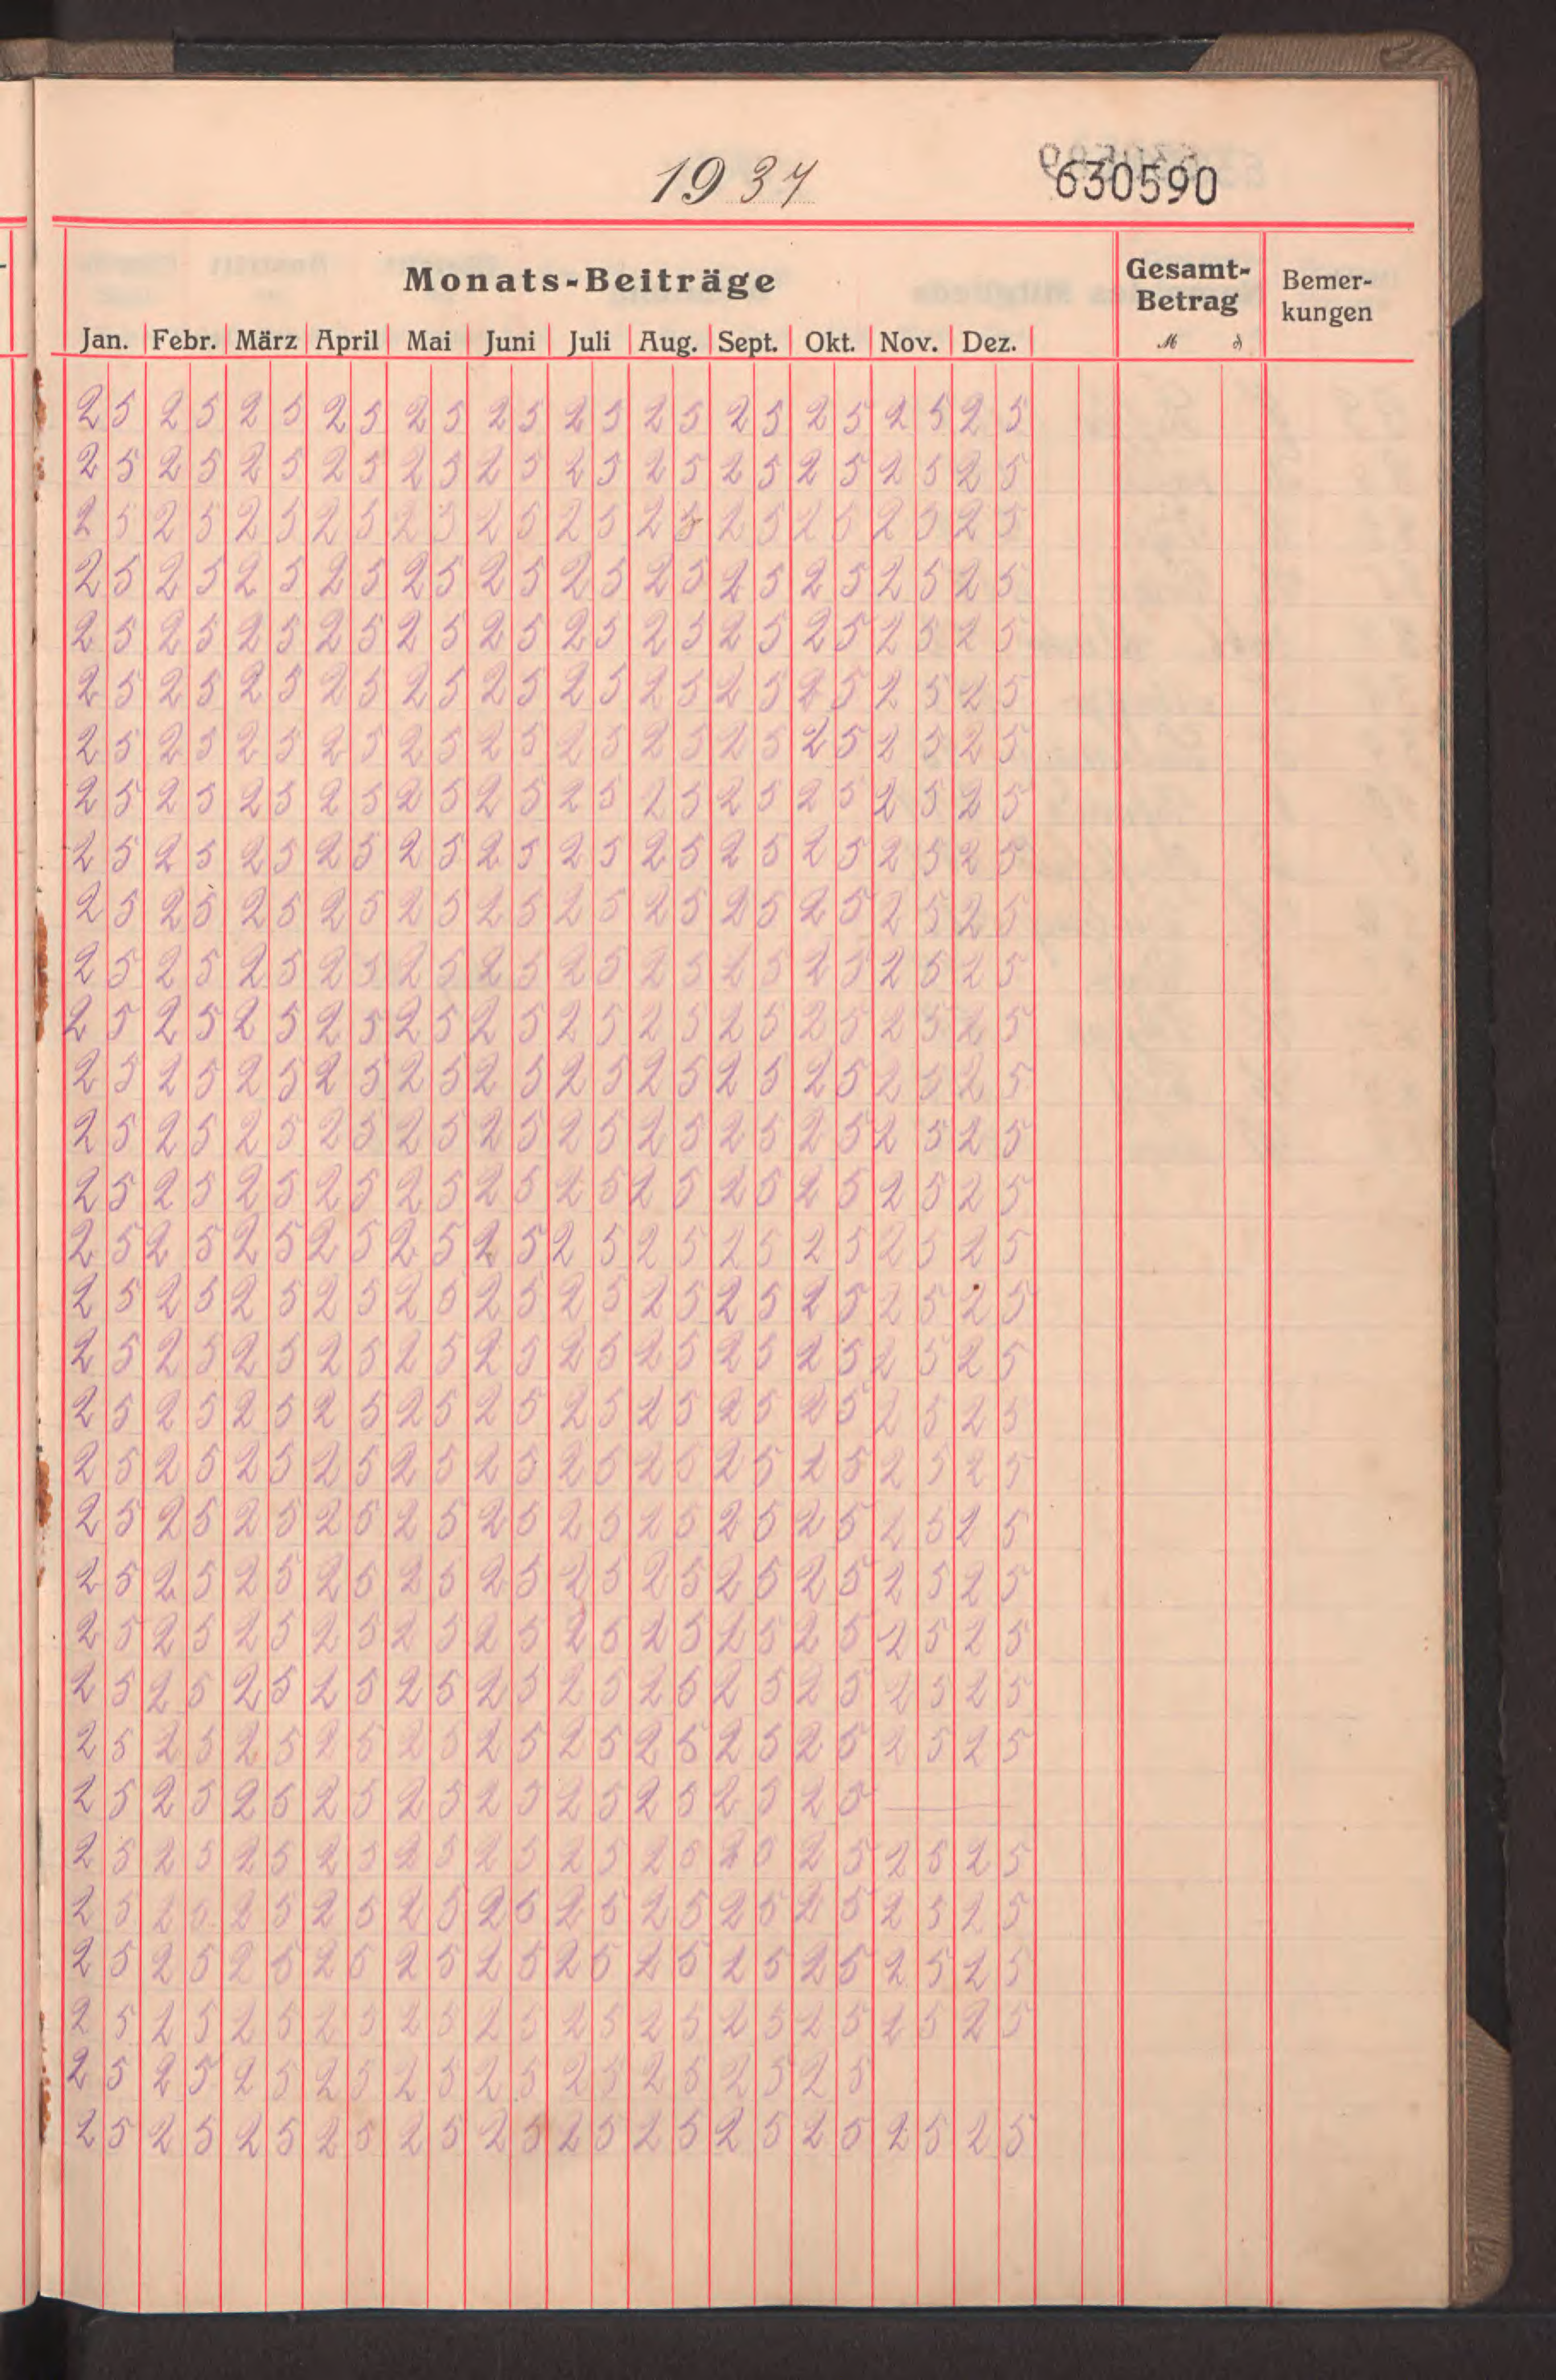 1934
630590
Monats-Beiträge Gesamt-Betrag Bemer-kungen
Jan. Febr. März April Mai Juni Juli Aug. Sept. Okt. Nov. Dez. ℳ ₰
25 25 25 25 25 25 25 25 25 25 25 25
25 25 25 25 25 25 25 25 25 25 25 25
25 25 25 25 25 25 25 25 25 25 25 25
25 25 25 25 25 25 25 25 25 25 25 25
25 25 25 25 25 25 25 25 25 25 25 25
25 25 25 25 25 25 25 25 25 25 25 25
25 25 25 25 25 25 25 25 25 25 25 25
25 25 25 25 25 25 25 25 25 25 25 25
25 25 25 25 25 25 25 25 25 25 25 25
25 25 25 25 25 25 25 25 25 25 25 25
25 25 25 25 25 25 25 25 25 25 25 25
25 25 25 25 25 25 25 25 25 25 25 25
25 25 25 25 25 25 25 25 25 25 25 25
25 25 25 25 25 25 25 25 25 25 25 25
25 25 25 25 25 25 25 25 25 25 25 25
25 25 25 25 25 25 25 25 25 25 25 25
25 25 25 25 25 25 25 25 25 25 25 25
25 25 25 25 25 25 25 25 25 25 25 25
25 25 25 25 25 25 25 25 25 25 25 25
25 25 25 25 25 25 25 25 25 25 25 25
25 25 25 25 25 25 25 25 25 25 25 25
25 25 25 25 25 25 25 25 25 25 25 25
25 25 25 25 25 25 25 25 25 25 25 25
25 25 25 25 25 25 25 25 25 25 25 25
25 25 25 25 25 25 25 25 25 25 25 25
25 25 25 25 25 25 25 25 25 25 —
25 25 25 25 25 25 25 25 25 25 25 25
25 25 25 25 25 25 25 25 25 25 25 25
25 25 25 25 25 25 25 25 25 25 25 25
25 25 25 25 25 25 25 25 25 25 25 25
25 25 25 25 25 25 25 25 25 25
25 25 25 25 25 25 25 25 25 25 25 25